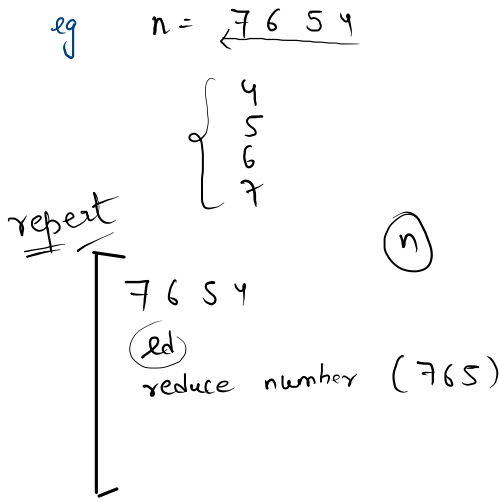 eg n = 7 6 5 4
4
5
6
7
repeat
n
7 6 5 4
ld
reduce number (765)